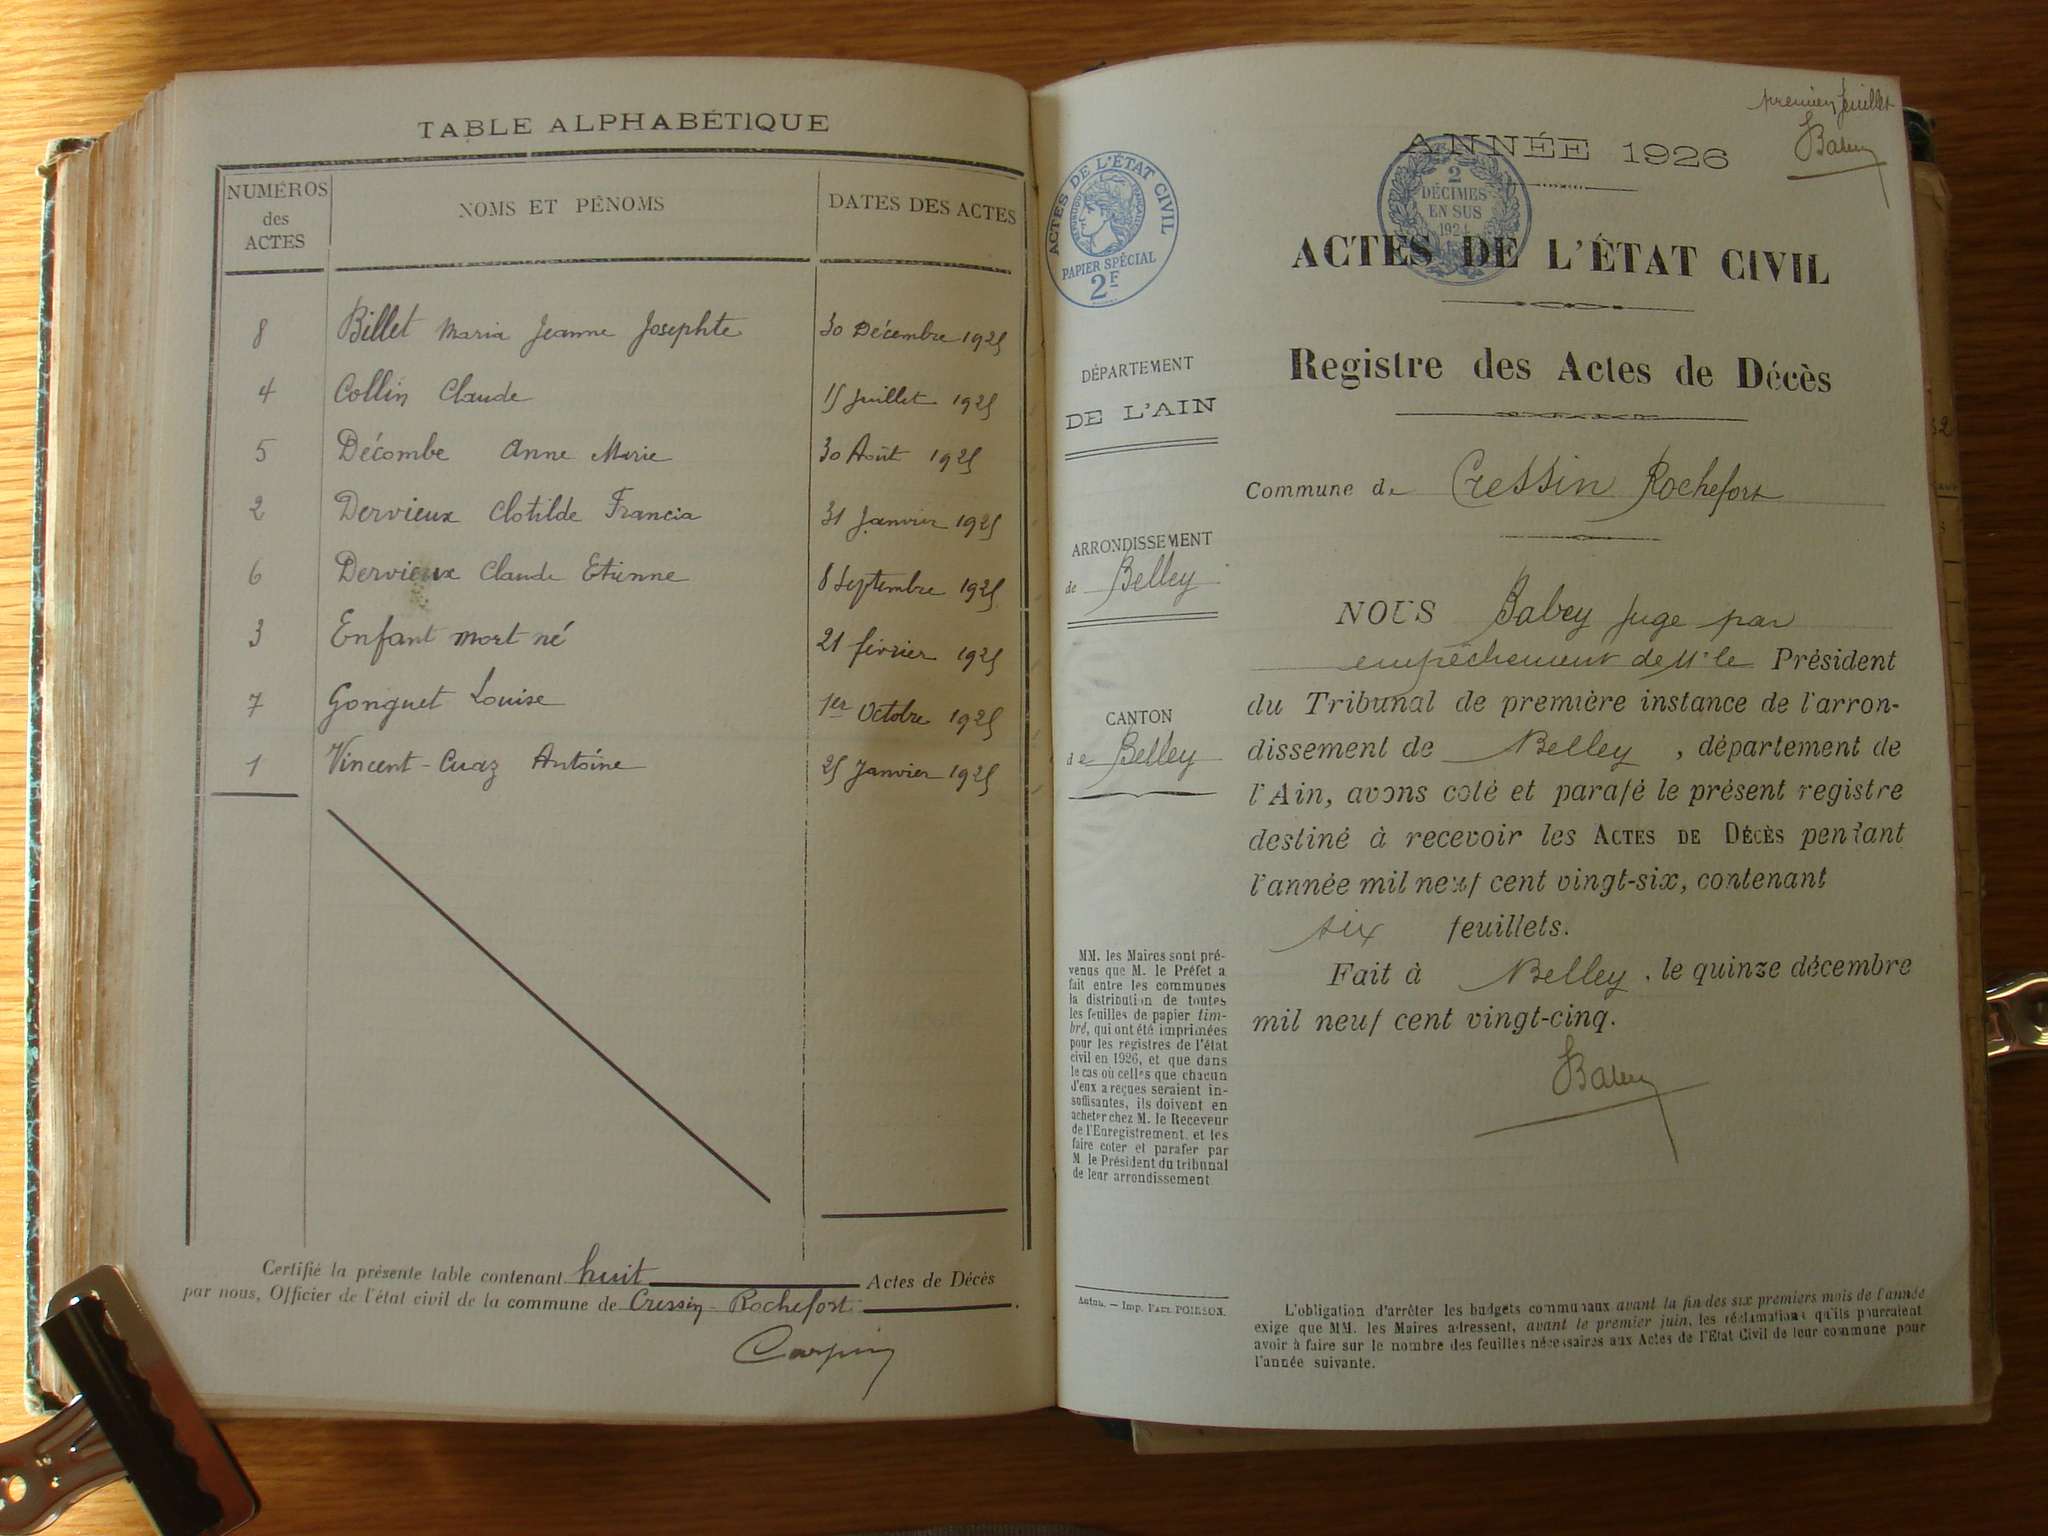 TABLE ALPHABÉTIQUE
NUMÉROS des ACTES
NOMS ET PÉNOMS
DATES DES ACTES
8 Billet Maria Jeanne Josephte 30 Décembre 1925
4 Collin Claude 15 Juillet 1925
5 Décombe Anne Marie 30 Août 1925
2 Dervieux Clotilde Francia 31 Janvier 1925
6 Dervieux Claude Etienne 8 Septembre 1925
3 Enfant mort né 21 février 1925
7 Gonguet Louise 1er Octobre 1925
1 Vincent-Cuaz Antoine 25 Janvier 1925
Certifié la présente table contenant huit Actes de Décès
par nous, Officier de l'état civil de la commune de Cressin-Rochefort.
premier feuillet
ANNÉE 1926
ACTES DE L'ÉTAT CIVIL
RÉPUBLIQUE FRANÇAISE
PAPIER SPÉCIAL
2F
2
DÉCIMES
EN SUS
1924
ACTES DE L'ÉTAT CIVIL
Registre des Actes de Décès
DÉPARTEMENT
DE L'AIN
ARRONDISSEMENT
de Belley
CANTON
de Belley
MM. les Maires sont pré-
venus que M. le Préfet a
fait entre les communes
la distribution de toutes
les feuilles de papier tim-
bré, qui ont été imprimées
pour les registres de l'état
civil en 1926, et que dans
le cas où celles que chacun
d'eux a reçues seraient in-
suffisantes, ils doivent en
acheter chez M. le Receveur
de l'Enregistrement, et les
faire coter et parafer par
M. le Président du tribunal
de leur arrondissement
Autun. — Imp. PAUL POIRSON.
Commune de Cressin Rochefort
NOUS Babey Juge par
empêchement de Mr le Président
du Tribunal de première instance de l'arron-
dissement de Belley, département de
l'Ain, avons coté et parafé le présent registre
destiné à recevoir les ACTES DE DÉCÈS pendant
l'année mil neuf cent vingt-six, contenant
six feuillets.
Fait à Belley, le quinze décembre
mil neuf cent vingt-cinq.
L'obligation d'arrêter les budgets communaux avant la fin des six premiers mois de l'année
exige que MM. les Maires adressent, avant le premier juin, les réclamations qu'ils pourraient
avoir à faire sur le nombre des feuilles nécessaires aux Actes de l'Etat Civil de leur commune pour
l'année suivante.